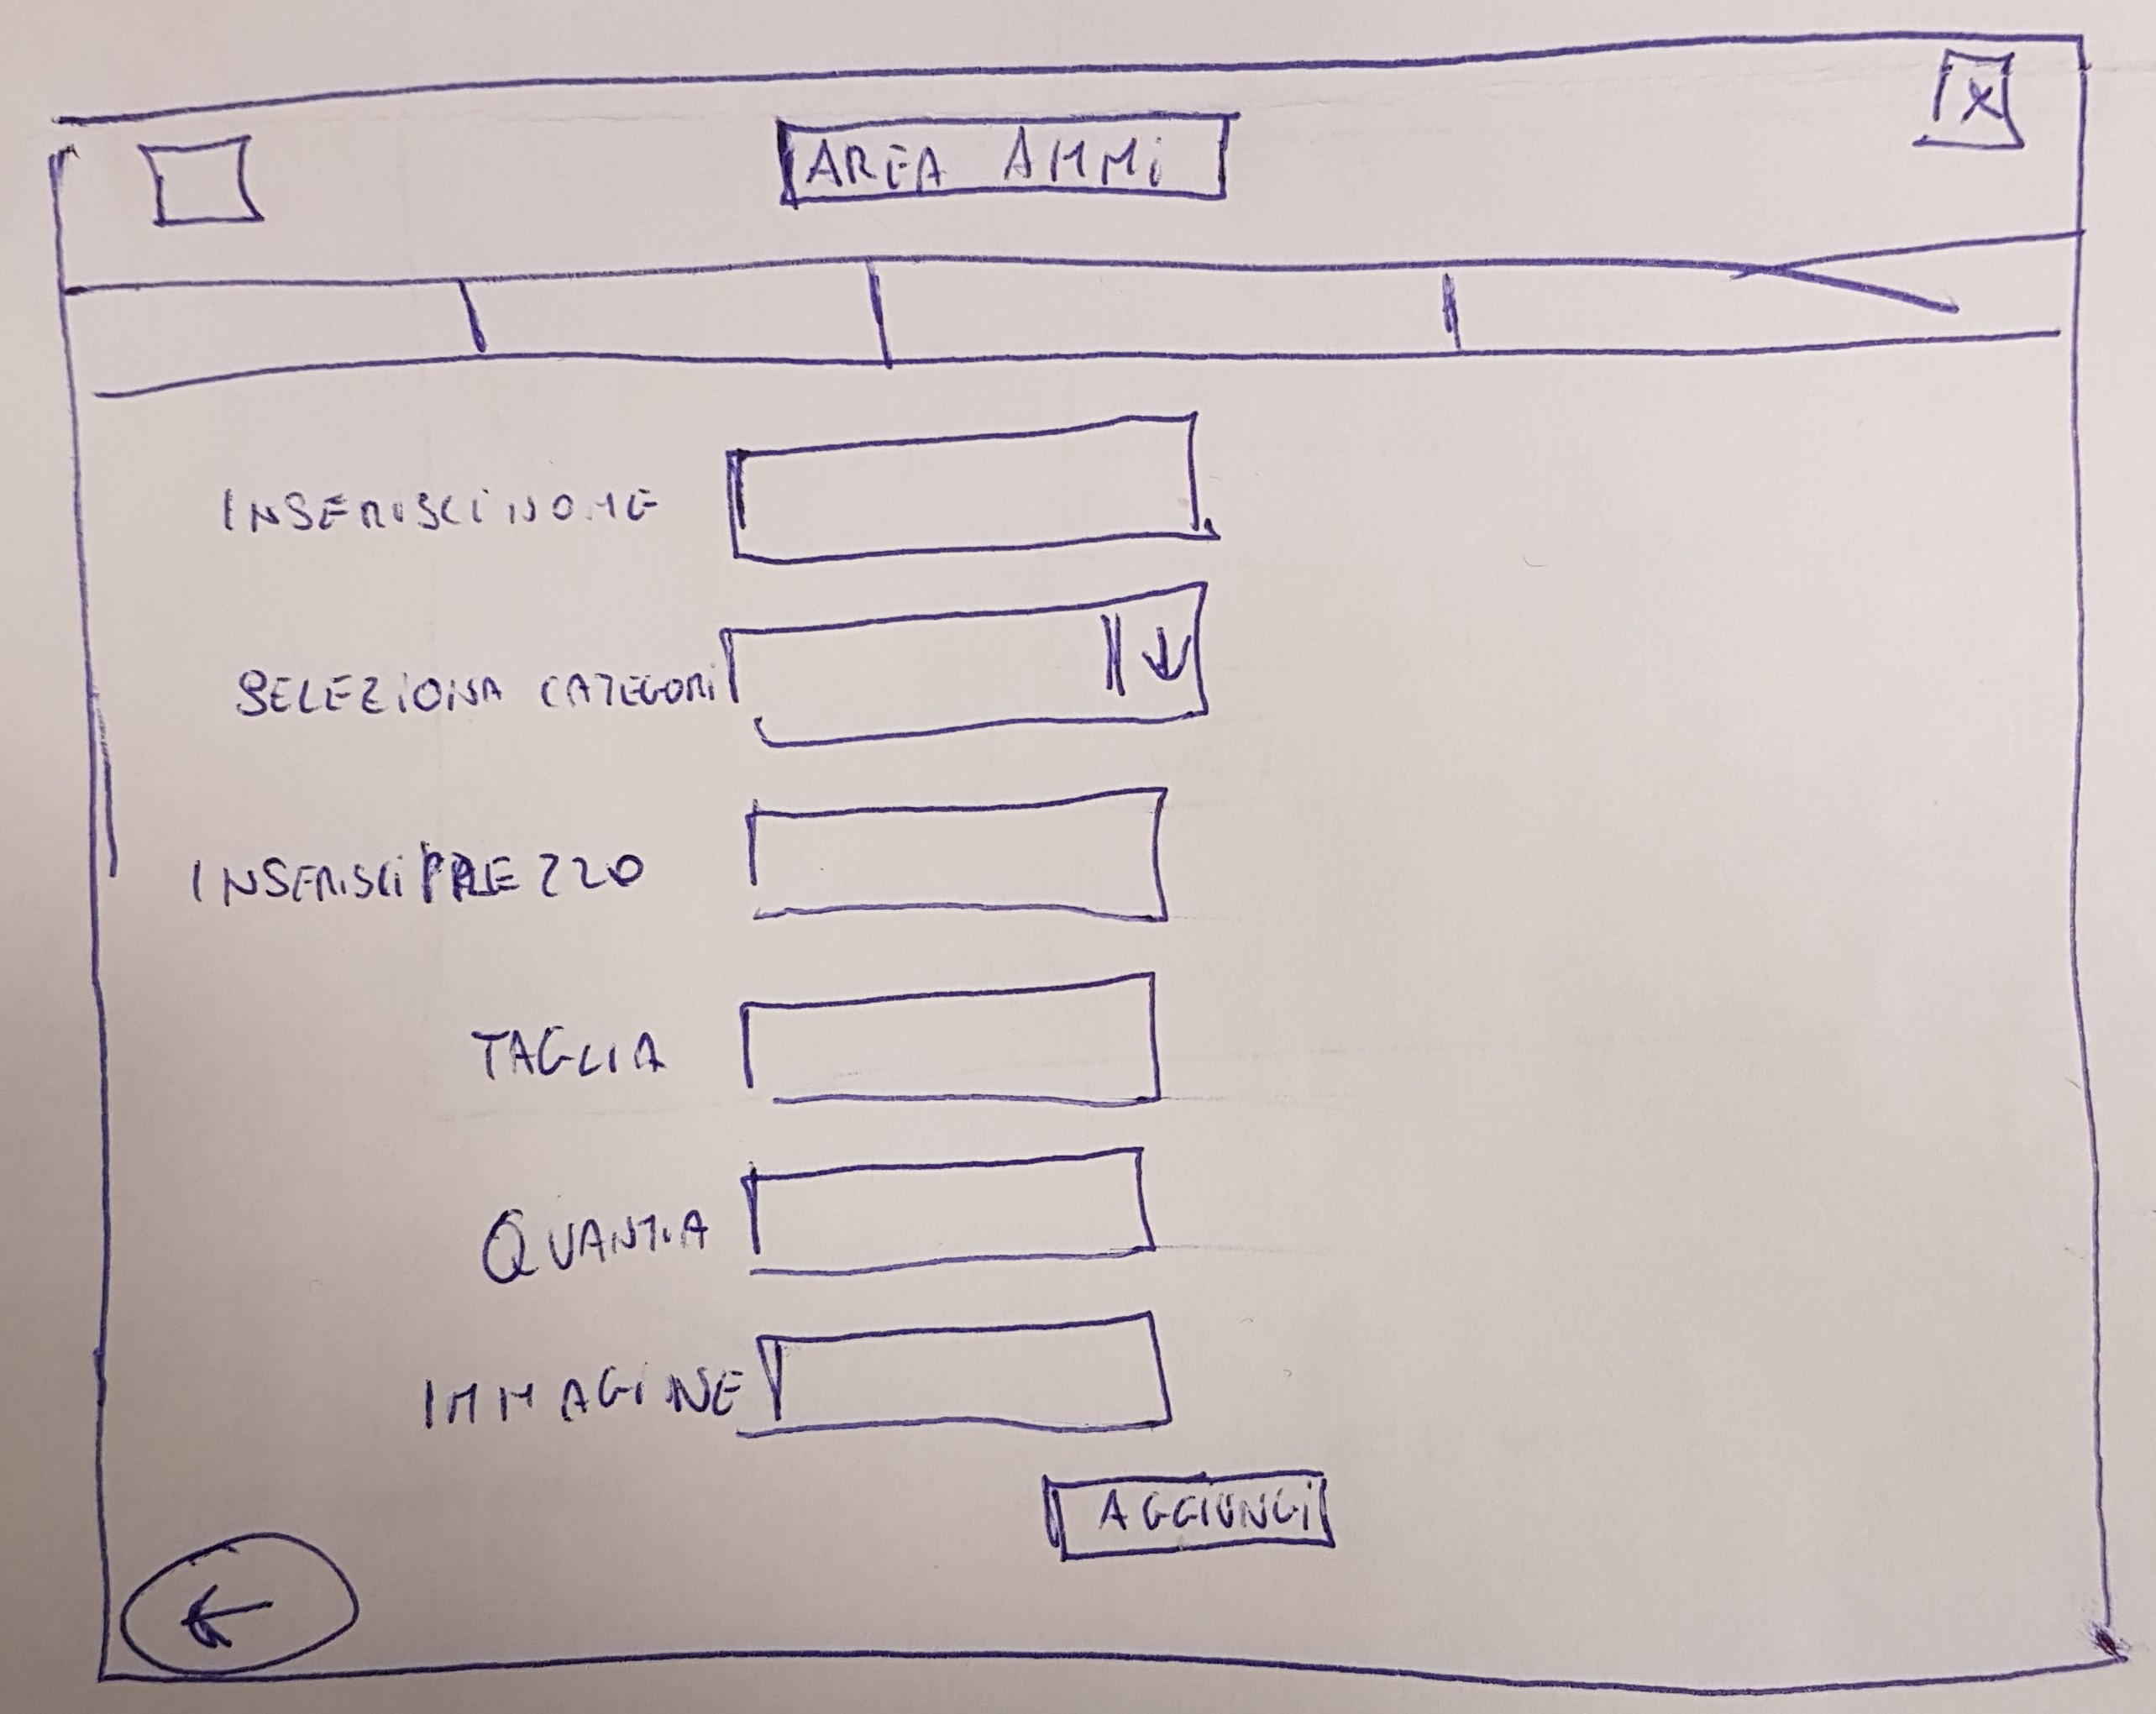 X
AREA AMMi
INSERISCi NOME
SELEZiONA CATEGORi
INSERISCi PREZZO
TAGLIA
QUANTIA
IMMAGiNE
AGGIUNGi